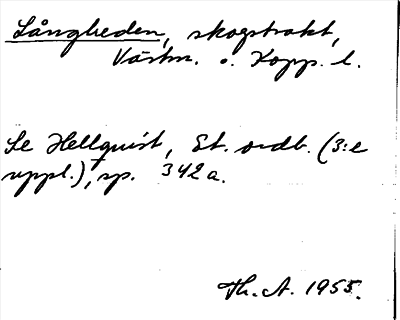 Långheden, skogstrakt,
Västm. o. Kopp. l.
Se Hellquist, Et. ordb. (3:e
uppl.), sp. 342a.
Th. A. 1955.